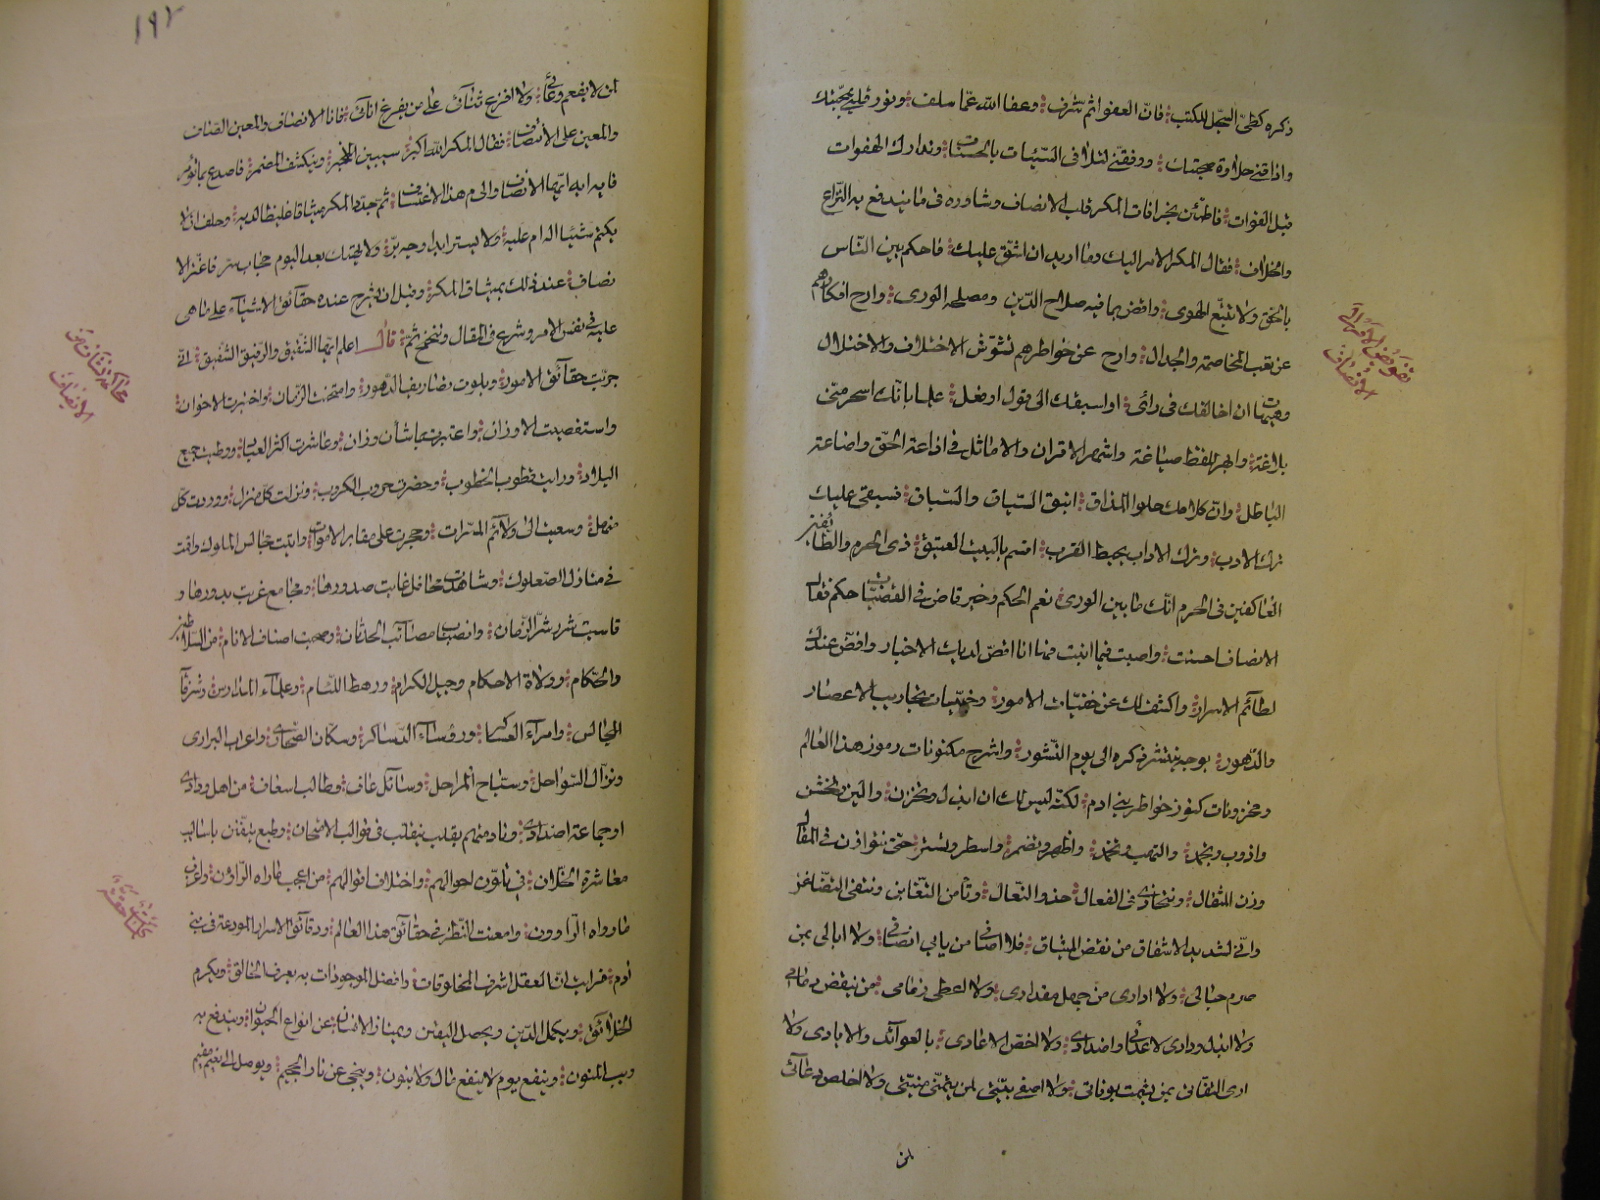 ذكره كطي السجل للكتب فان العفو اثم شرف وعفا الله عما سلف ونور قلبي بمحبتك
واذاقني حلاوة صحبتك ووفقني لتلافى السيئات بالحسنات وتدارك الهفوات
قبل الفوات فاطمئن بخرافات المكر قلب الانصاف وشاوره فى ما يندفع به النزاع
والخلاف فقال المكر الامر اليك وما اريد ان اشق عليك فاحكم بين الناس
بالحق ولا تتبع الهوى واقض بما فيه صلاح الدين ومصلحه الورى وارح افكارهم
عن تعب المخاصمة والجدال وارح عن خواطرهم تشوش الاختلاف والاختلال
وهيهات ان اخالفك فى رائى او اسبقك الى قول او فعل علما بانك اسحر منى
بلاغة وابهر للفظ صياغة واشهر الاقران والاماثل فى اذاعة الحق واضاعة
الباطل وان كلامك حلو المذاق انيق السياق والسباق فسبقى عليك
ترك الادب وترك الاداب يحبط القرب اقسم بالبيت العتيق ذى الحرم والطائفين
العاكفين فى الحرم انك ما بين الورى نعم الحكم وخير قاض فى القضيات حكم فقال
الانصاف احسنت واصبت فيما اتيت فها انا اقص لديك الاخبار وافض عندك
لطائم الاسرار واكشف لك عن خفيات الامور وخبيات تجاريب الاعصار
والدهور بوجه ينتشر ذكره الى يوم النشور واشرح مكنونات رموز هذا العالم
ومخزونات كنوز خواطر بني ادم لكنه ليس لك ان ابذل وتخزن والين وتخشن
واذوب وتجمد والتهب وتخمد واظهر وتضمر واسطر وتستر حتى نتوازن فى المقال
وزن المثقال ونتحاذى فى الفعال حذو النعال ونأمن التغابن ونتقى التضاغن
وانى لشديد الاشفاق من نقض الميثاق فلا اصافى من يابى انصافى ولا ابالى بمن
صرم حبالى ولا ادارى من جهل مقدارى ولا اعطى زمامى من ينقض ذمامى
ولا ابذل ودادى لاعدائى واضدادى ولا اخص الاعادى بالعوائد والايادى ولا
ارى التفاتى بمن يشمت بوفاتى ولا اصفى بنيتى لمن يتمنى منيتى ولا اخلص دعائى
لمن
تفويض الامر الى
الانصاف
١٩٢
لمن لا يفعم وعائى ولا افرغ ثنائى على من يفرغ انائى فانا الانصاف والمعين الصاف
والمعين على الانتصاف فقال المكر الله اكبر سيبين المخبر وينكشف المضمر فاصدع بما تؤمر
فايه ايه ايها الانصاف والى م هذا الاعتساف ثم جدد المكر ميثاقا غليظا لديه وحلف ان لا
يكتم شيئا الهم عليه ولا يستر ابدا وجه بره ولا يحتجب بعد اليوم حجاب سر فاغتر الا
نصاف عند ذلك بميثاق المكر وقبل ان يشرح عنده حقائق الاشياء على ما هى
عليه فى نفس الامر وشرع فى المقال وتنحنح ثم قال اعلم ايها الشفيق والرفيق الشفيق انى
جربت حقائق الامور وبلوت تصاريف الدهور وامتحنت الزمان واختبرت الاخوان
واستقصيت الاوزان واعتبرت ما شان وزان وعاشرت اكثر العباد ووطئت جميع
البلاد ورايت قطوب الخطوب وحضرت حروب الكروب ونزلت كل منزل ووردت كل
منهل وسعيت الى ولائم المسرات وحجرت على مقابر الاموات واتيت مجالس الملوك واقمت
فى منازل الصعلوك وشاهدت محافل غابت صدورها ومجامع غربت بدورها و
قاسيت شرر شر الزمان وانصباب مصائب الحدثان وصحبت اصناف الانام من السلاطين
والحكام وولاة الاحكام وجيل الكرام ورهط اللئام وعلماء المدارس وشرفاء
المجالس وامراء العساكر ورؤساء الدساكر وسكان الصحارى واعراب البرارى
ونزال السواحل وسياح المراحل وسائل عاف وطالب اسعاف من اهل ودادى
او جماعة اضدادى ونادمتهم بقلب يتقلب فى قوالب الامتحان وطبع يتفنن باساليب
معاشرة الخلان فى تلون احوالهم واختلاف اقوالهم من اعجب ما راه الراؤن واغرب
ما رواه الراوون وامعنت النظر فى حقائق هذا العالم ودقائق الاسرار المودعة فى بنى
ادم فرايت ان العقل اشرف المخلوقات وافضل الموجودات به يعرف الخالق ويكرم
الخلائق ويكمل الدين ويحصل اليقين ويمتاز الانسان عن انواع الحيوان ويندفع به
ريب المنون وينفع يوم لا ينفع مال ولا بنون وينجى عن نار الجحيم ويوصل الى نعيم مقيم
الانصاف